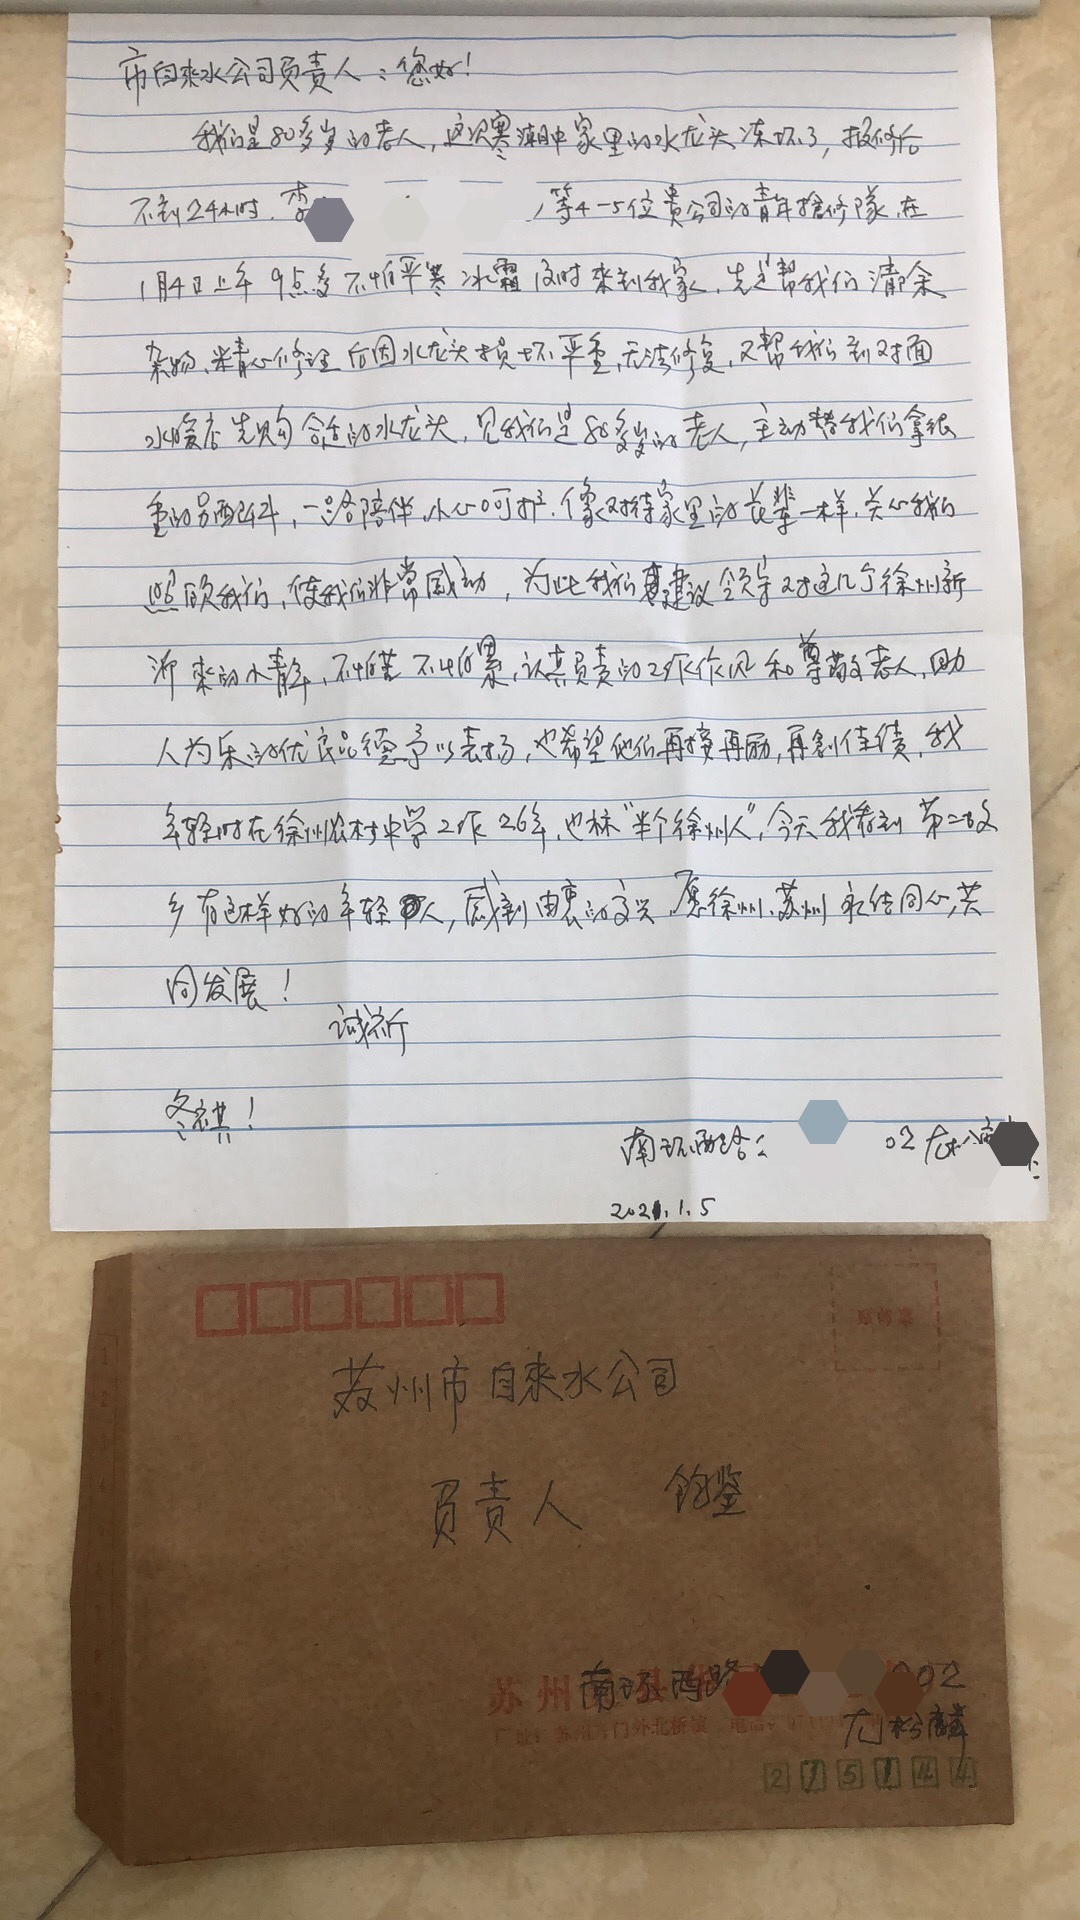 市自来水公司负责人：您好！
我们是80多岁的老人，这次寒潮中家里的水龙头冻坏了，报修后
不到24小时，李 等4-5位贵公司的青年抢修队，在
1月4日上午9点多不怕严寒冰霜及时来到我家，先是帮我们清除
杂物、精心修理后因水龙头损坏严重，无法修复，又帮我们到对面
水暖店选购合适的水龙头，见我们是80多岁的老人，主动替我们拿很
重的另配件，一路陪伴，小心呵护，像对待家里的长辈一样，关心我们
照顾我们，使我们非常感动，为此我们建议领导对这几个徐州新
沂来的小青年，不怕苦不怕累，认真负责的工作作风和尊敬老人，助
人为乐的优良品德予以表扬，也希望他们再接再励，再创佳绩，我
年轻时在徐州农村中学工作26年，也称“半个徐州人”，今天我看到第二故
乡有这样好的年轻人，感到由衷的高兴，愿徐州、苏州永结同心，共
同发展！
诚祈
冬祺！
南环西路 02 尤松
2021.1.5
苏州市自来水公司
负责人 钧鉴
苏州
南环西路 202
门外北桥镇 电话
尤松麟
215144